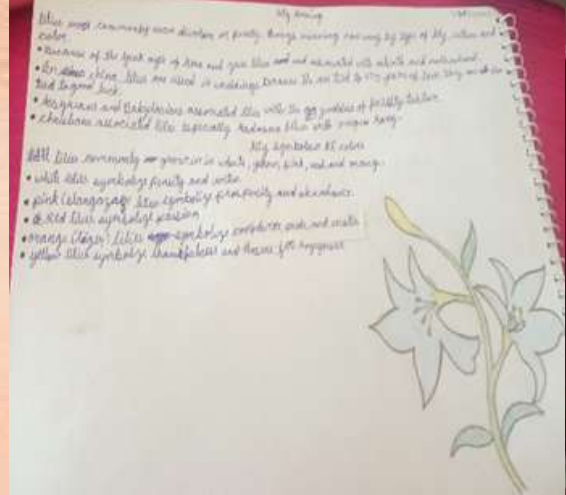 Lily Meaning
lilies most commonly mean devotion or purity things meaning can vary by type of lily, culture and
color.
• Because of the greek myth of Hera and Zeus lilies and are associated with rebirth and motherhood.
• In china lilies are used in weddings because the are tied to 100 years of love. They are also
tied to good luck.
• Assyrians and Babylonians associated lilies with the goddess of fertility Ishtar.
• Christians associated lilies especially Madonna lilies with virgin Mary.
lily symbolism by color
lilies commonly grow in white, yellow, pink, red and orange.
• white lilies symbolize purity and
• pink (stargazer) lilies symbolize prosperity and abundance.
• Red lilies symbolize passion
• orange (tiger) lilies symbolize confidence pride and wealth
• yellow lilies symbolize thankfulness and desire for enjoyment